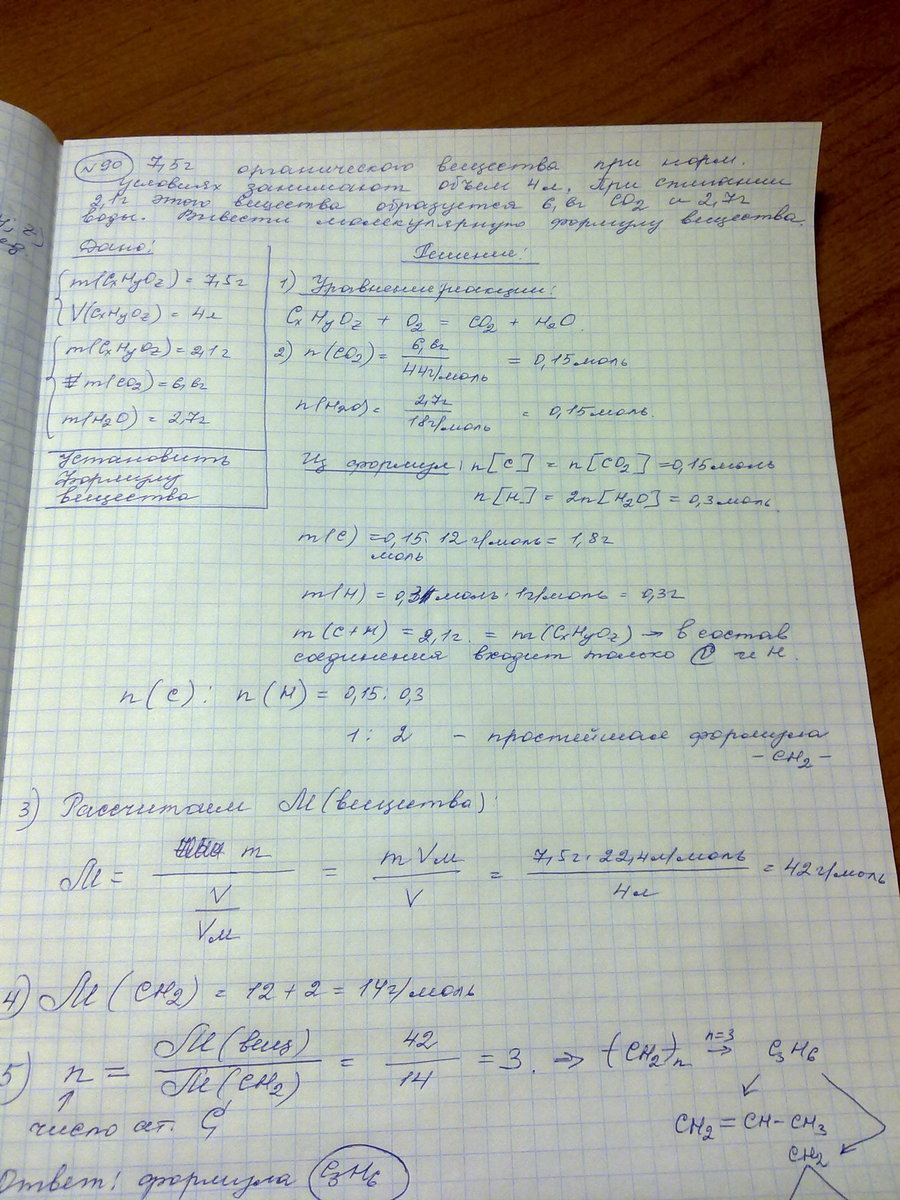 N90 7,5г органического вещества при норм.
условиях занимают объем 4л. При сжигании
2,1г этого вещества образуется 6,6г CO2 и 2,7г
воды. Вывести молекулярную формулу вещества.
Дано:
m(CxHyOz) = 7,5г
V(CxHyOz) = 4л
m(CxHyOz) = 2,1г
m(CO2) = 6,6г
m(H2O) = 2,7г
Установить
формулу
вещества
Решение:
1) Уравнение реакции:
CxHyOz + O2 = CO2 + H2O.
2) n(CO2) = 6,6г / 44г/моль = 0,15моль
n(H2O) = 2,7г / 18г/моль = 0,15моль.
Из формул: n[C] = n[CO2] = 0,15моль
n[H] = 2n[H2O] = 0,3моль.
m(C) = 0,15 · 12г/моль = 1,8г
моль
m(H) = 0,3 моль · 1г/моль = 0,3г
m(C+H) = 2,1г. = m(CxHyOz) → в состав
соединения входит только C и H.
n(C) : n(H) = 0,15 : 0,3
1 : 2 – простейшая формула
- CH2 -
3) Рассчитаем M(вещества):
M = m / (V / Vм) = m Vм / V = 7,5г · 22,4л/моль / 4л = 42г/моль
4) M(CH2) = 12 + 2 = 14г/моль
5) n = M(вещ) / M(CH2) = 42 / 14 = 3. ⇒ (CH2)n n=3 → C3H6
↑
число ат. C
CH2 = CH - CH3
CH2
Ответ: формула C3H6